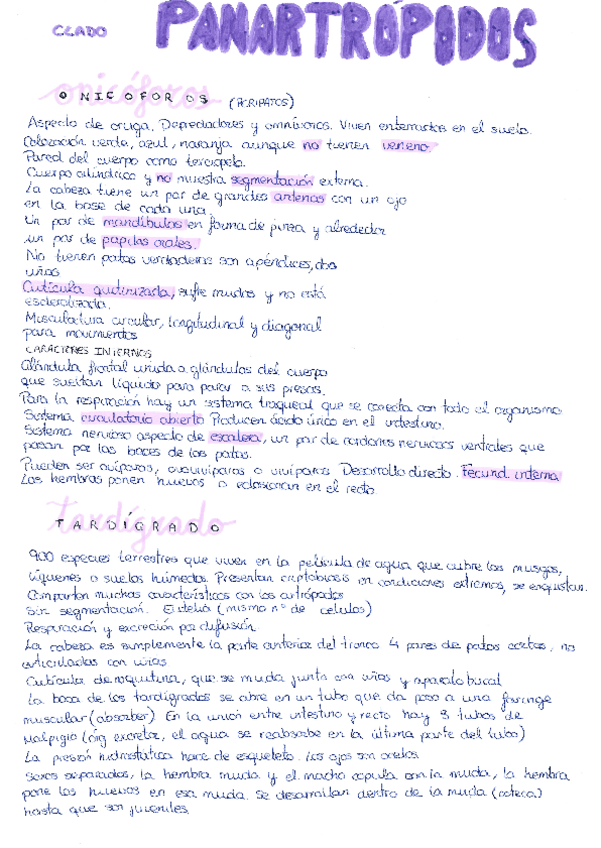 CLADO PANARTRÓPIDOS
onicóforos
ONICOFOROS (ACRIPATOS)
Aspecto de oruga. Depredadores y omnívoros. Viven enterrados en el suelo.
Coloración verde, azul, naranja aunque no tienen veneno.
Pared del cuerpo como terciopelo.
Cuerpo cilíndrico y no muestra segmentación externa.
La cabeza tiene un par de grandes antenas con un ojo
en la base de cada una.
Un par de mandíbulas en forma de pinza y alrededor
un par de papilas orales.
No tienen patas verdaderas son apéndices, dos
uñas
Cutícula quitinizada, sufre mudas y no está
esclerotizada.
Musculatura circular, longitudinal y diagonal
para movimientos
CARACTERES INTERNOS
Glándula frontal unida a glándulas del cuerpo
que sueltan líquido para parar a sus presas.
Para la respiración hay un sistema traqueal que se conecta con todo el organismo
Sistema circulatorio abierto Producen ácido úrico en el intestino.
Sistema nervioso aspecto de escalera, un par de cordones nerviosos ventrales que
pasan por las bases de las patas.
Pueden ser ovíparos, ovovivíparos o vivíparos Desarrollo directo. Fecund. interna
Las hembras ponen huevos o eclosionan en el recto
tardígrado
TARDÍGRADO
900 especies terrestres que viven en la película de agua que cubre los musgos,
líquenes o suelos húmedos. Presentan criptobiosis en condiciones extremas, se enquistan.
Comparten muchas características con los artrópodos
Sin segmentación. Eutelia (mismo nº de células)
Respiración y excreción por difusión.
La cabeza es simplemente la parte anterior del tronco 4 pares de patas cortas, no
articuladas con uñas.
Cutícula de quitina, que se muda junto con uñas y aparato bucal
La boca de los tardígrados se abre en un tubo que da paso a una faringe
muscular (absorber). En la unión entre intestino y recto hay 3 tubos de
malpigio (órg excretor, el agua se reabsorbe en la última parte del tubo)
La presión hidrostática hace de esqueleto. Los ojos son ocelos.
Sexos separados, la hembra muda y el macho copula con la muda, la hembra
pone los huevos en esa muda. Se desarrollan dentro de la muda (ooteca)
hasta que son juveniles.